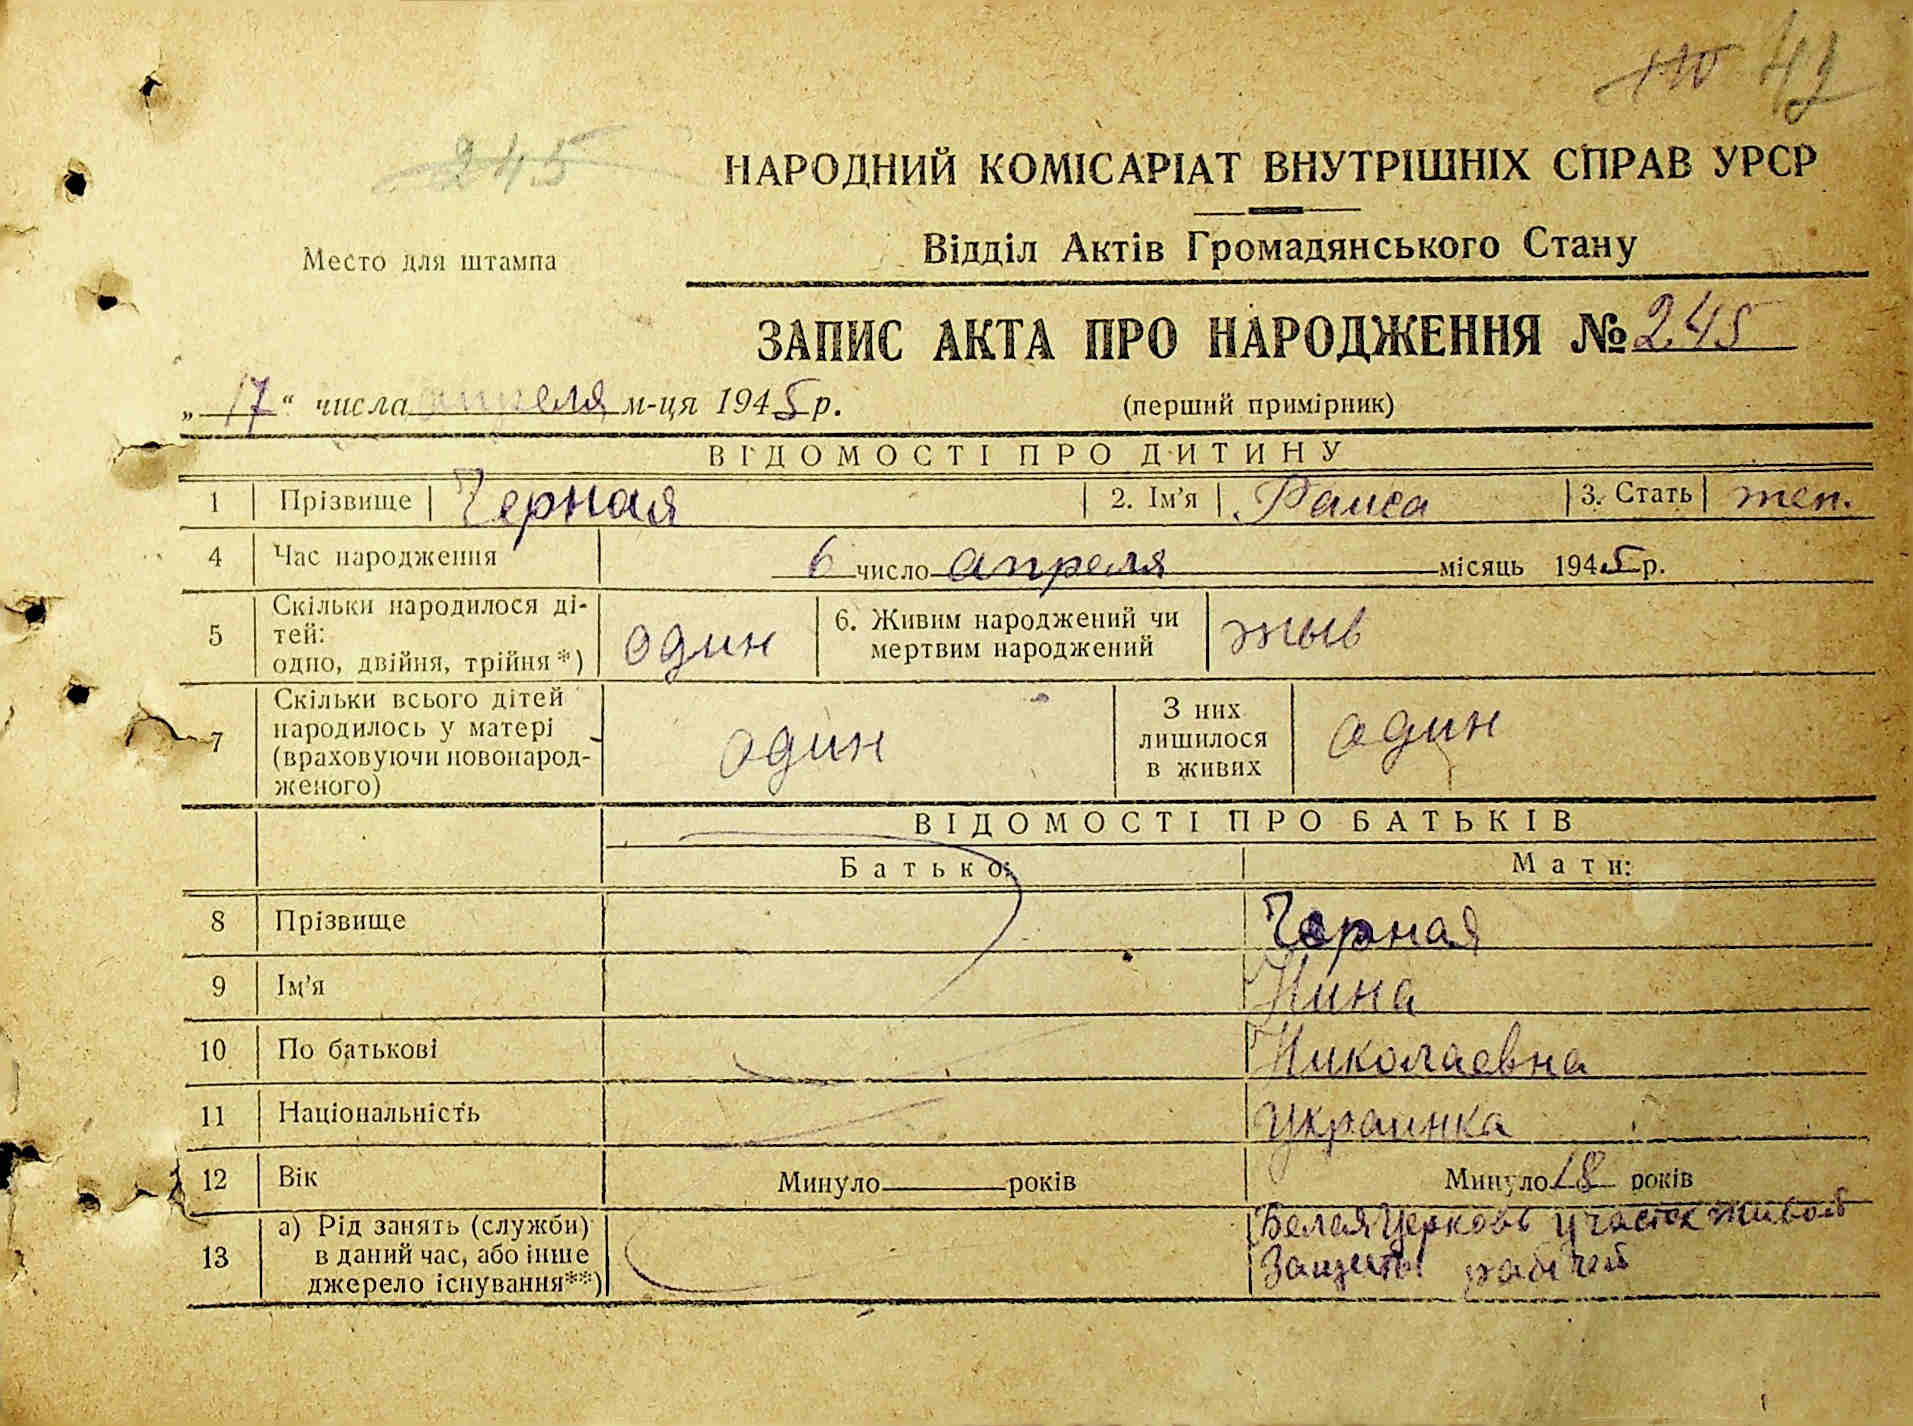 42
245
НАРОДНИЙ КОМІСАРІАТ ВНУТРІШНІХ СПРАВ УРСР
Место для штампа
Відділ Актів Громадянського Стану
ЗАПИС АКТА ПРО НАРОДЖЕННЯ № 245
„17“ числа апреля м-ця 1945 р.
(перший примірник)
ВІДОМОСТІ ПРО ДИТИНУ
1 Прізвище Черная 2. Ім’я Раиса 3. Стать жен.
4 Час народження 6 число апреля місяць 1945 р.
5 Скільки народилося ді-
тей:
одно, двійня, трійня *) один 6. Живим народжений чи
мертвим народжений жыв
7 Скільки всього дітей
народилось у матері
(враховуючи новонарод-
женого) один З них
лишилося
в живих один
ВІДОМОСТІ ПРО БАТЬКІВ
Батько: Мати:
8 Прізвище Черная
9 Ім’я Нина
10 По батькові Николаевна
11 Національність украинка
12 Вік Минуло років Минуло 18 років
13 а) Рід занять (служби)
в даний час, або інше
джерело існування**) Белая Церковь участок живой
Защиты рабочей